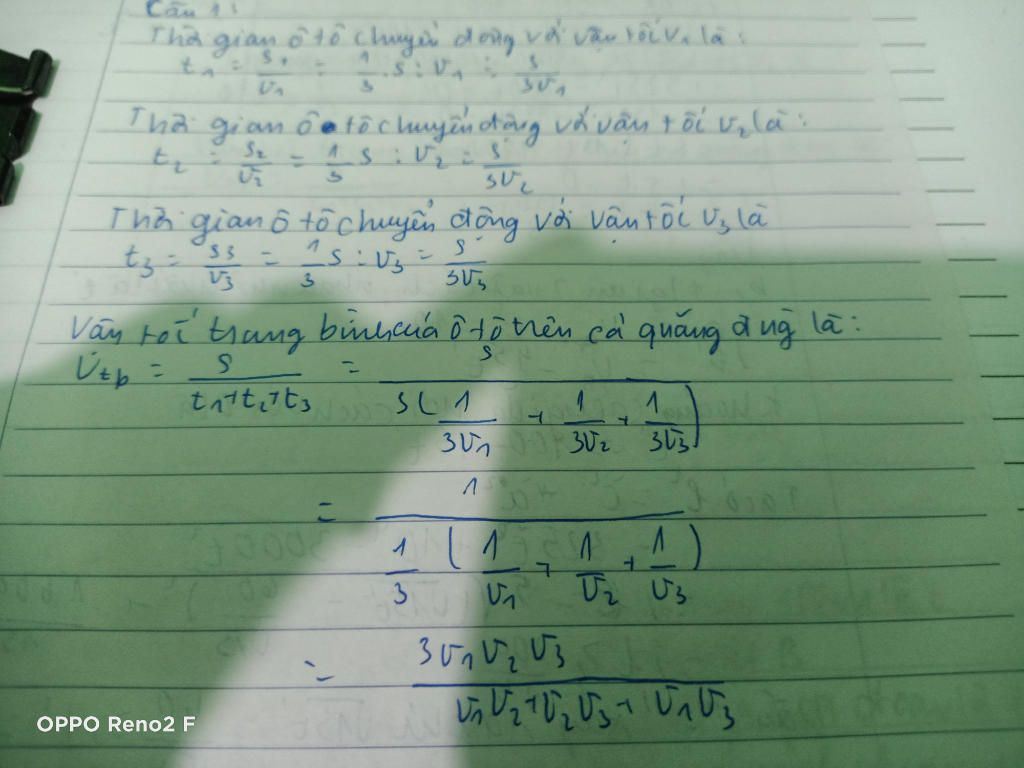 Câu 1:
Thời gian ô tô chuyển động với vận tốc V1 là:
t1 = S1/V1 = 1/3 . S : V1 = S/3V1
Thời gian ô tô chuyển động với vận tốc V2 là:
t2 = S2/V2 = 1/3 S : V2 = S/3V2
Thời gian ô tô chuyển động với vận tốc V3 là
t3 = S3/V3 = 1/3 S : V3 = S/3V3
Vân tốc trung bình của ô tô trên cả quãng đng là:
Vtb = S/(t1+t2+t3) = S/(S(1/3V1 + 1/3V2 + 1/3V3))
= 1/(1/3 (1/V1 + 1/V2 + 1/V3))
= 3V1V2V3/(V1V2+V2V3+V1V3)
OPPO Reno2 F